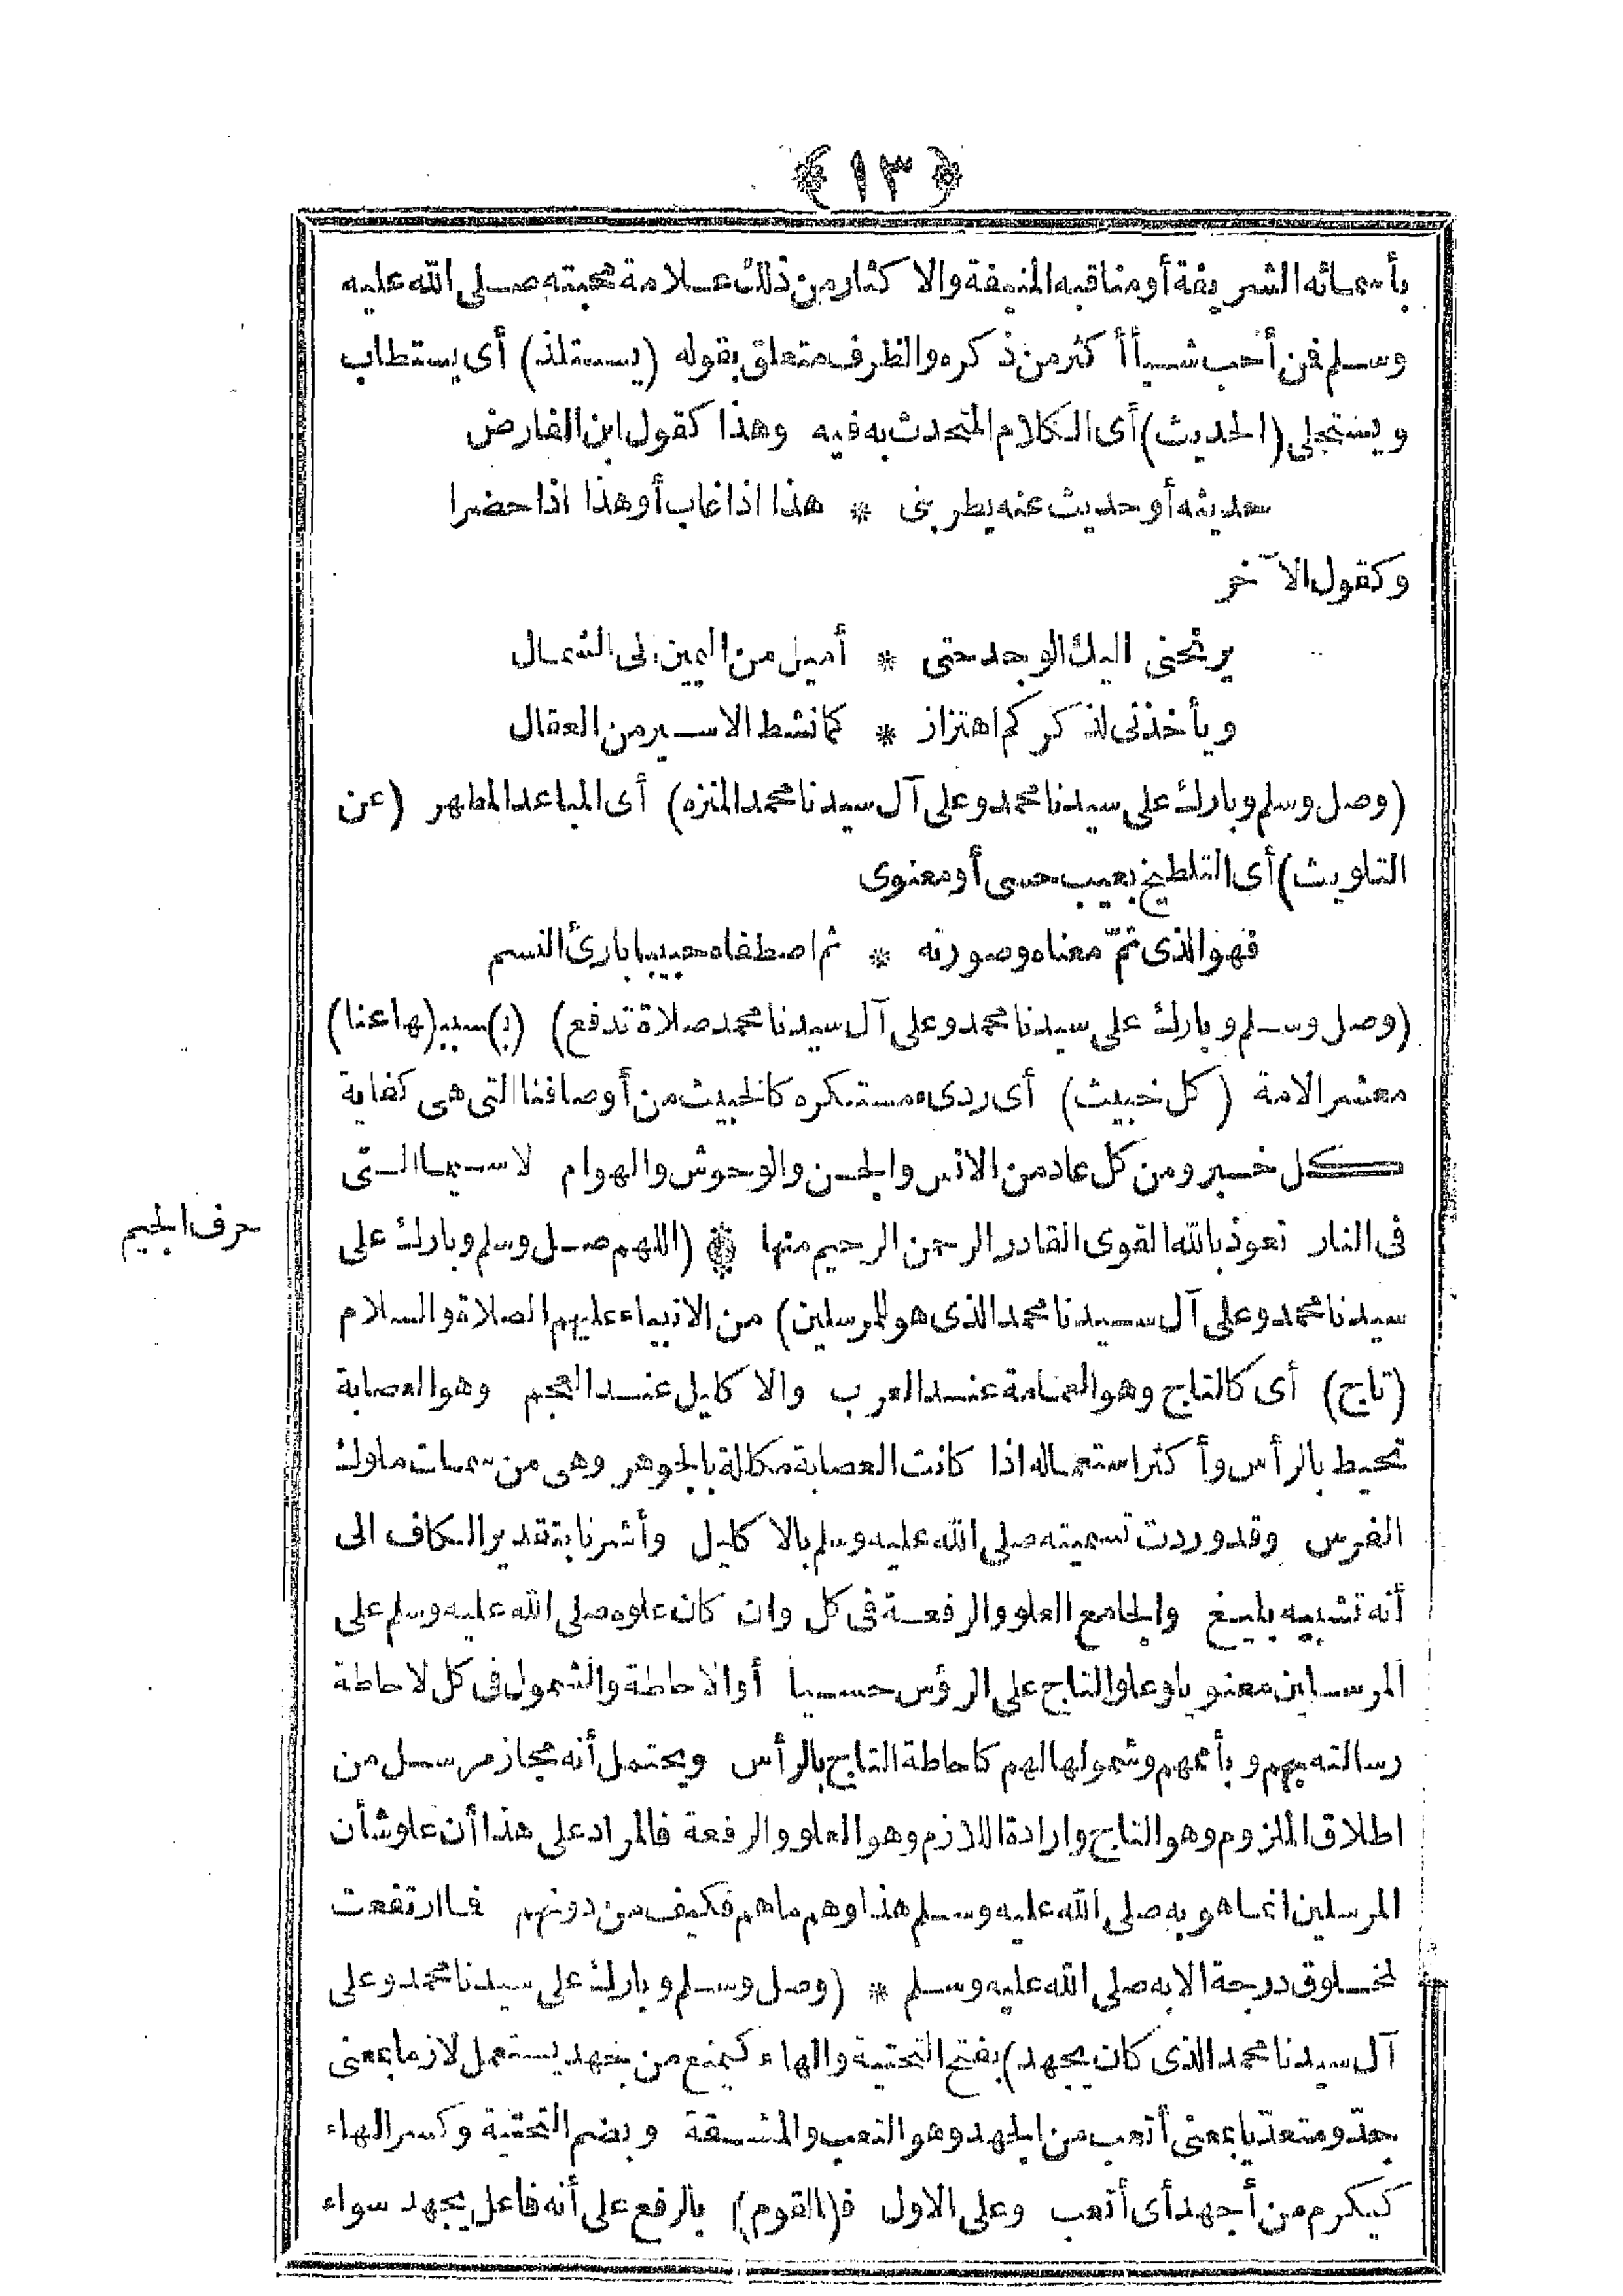 ﴿ ١٣ ﴾
بأسمائه الشريفة أو مناقبه المنيفة والاكثار من ذلك علامة محبته صلى الله عليه
وسلم فن أحب شيأ أكثر من ذكره والظرف متعلق بقوله (يستلذ) أى يستطاب
ويستحلى (الحديث) أى الكلام المتحدث به فيه وهذا كقول ابن الفارض
حديثه أو حديث عنه يطربنى * هذا اذا غاب أو هذا اذا حضرا
وكقول الآخر
يرنحنى اليك الوجد حتى * أميل من اليمين الى الشمال
ويأخذنى لذكركم اهتزاز * كما نشط الاسير من العقال
(وصل وسلم وبارك على سيدنا محمد وعلى آل سيدنا محمد المنزه) أى المباعد المطهر (عن
التلويث) أى التلطيخ بعيب حسى أو معنوى
فهو الذى تمّ معناه وصورته * ثم اصطفاه حبيبا بارئ النسم
(وصل وسلم وبارك على سيدنا محمد وعلى آل سيدنا محمد صلاة تدفع) (ب) سبب (ها عنا)
معشر الامة (كل خبيث) أى ردىء مستكره كالخبيث من أوصافنا التى هى كفاية
كل خبير ومن كل عاد من الانس والجن والوحوش والهوام لاسيما التى
فى النار نعوذ بالله القوى القادر الرحمن الرحيم منها * (اللهم صل وسلم وبارك على
حرف الجيم
سيدنا محمد وعلى آل سيدنا محمد الذى هو للمرسلين) من الانبياء عليهم الصلاة والسلام
(تاج) أى كالتاج وهو العمامة عند العرب والاكليل عند العجم وهو العصابة
تحيط بالرأس وأكثر استعماله اذا كانت العصابة مكللة بالجوهر وهى من سمات ملوك
الفرس وقد وردت تسميته صلى الله عليه وسلم بالاكليل وأشرنا بتقدير الكاف الى
أنه تشبيه بليغ والجامع العلو والرفعة فى كل وان كان علوه صلى الله عليه وسلم على
المرسلين معنويا وعلو التاج على الرؤس حسيا أو الاحاطة والشمول فى كل لاحاطة
رسالته بهم وبأممهم وشمولها لهم كاحاطة التاج بالرأس ويحتمل أنه مجاز مرسل من
اطلاق الملزوم وهو التاج وارادة اللازم وهو العلو والرفعة فالمراد على هذا أن علو شأن
المرسلين انما هو به صلى الله عليه وسلم هذا وهم ما هم فكيف من دونهم فما ارتفعت
لمخلوق درجة الا به صلى الله عليه وسلم * (وصل وسلم وبارك على سيدنا محمد وعلى
آل سيدنا محمد الذى كان يجهد) بفتح التحتية والهاء كيمنع من جهد يستعمل لازما بمعنى
جدّ ومتعديا بمعنى أتعب من الجهد وهو التعب والمشقة وبضم التحتية وكسر الهاء
كيكرم من أجهد أى أتعب وعلى الاول ف(القوم) بالرفع على أنه فاعل يجهد سواء